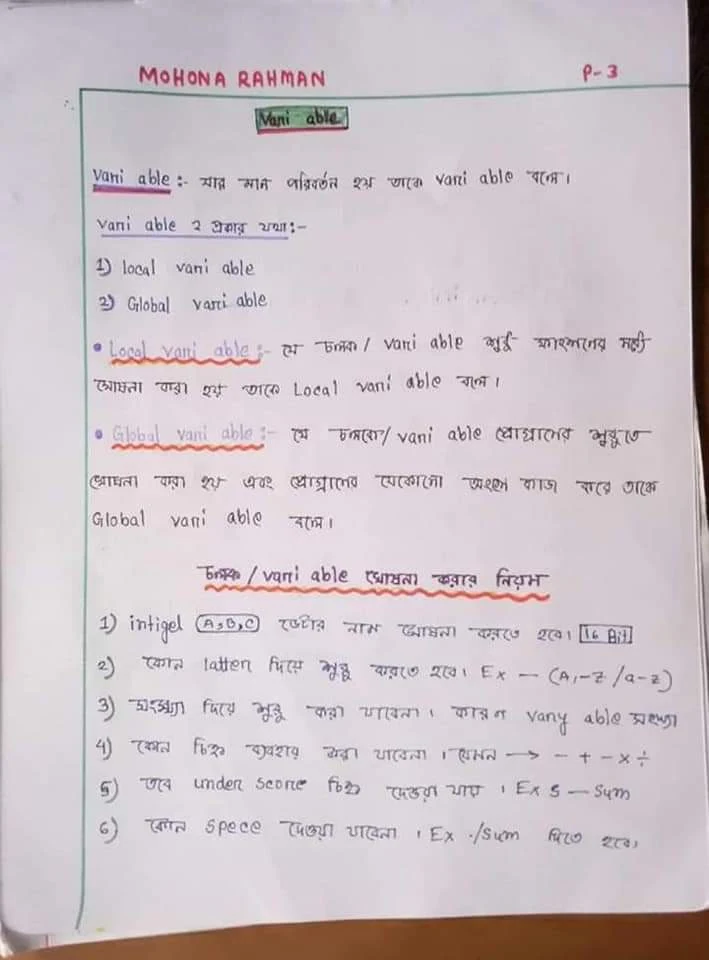 MOHONA RAHMAN
P-3
Vari able
Vari able :- যার মান পরিবর্তন হয় তাকে vari able বলে।
Vari able ২ প্রকার যথা:-
1) local vari able
2) Global vari able
• Local vari able :- যে চলক / vari able শুধু ফাংশনের মধ্যে
ঘোষনা করা হয় তাকে Local vari able বলে।
• Global vari able :- যে চলকে/ vari able প্রোগ্রামের শুরুতে
ঘোষনা করা হয় এবং প্রোগ্রামের যেকোনো অংশে কাজ করে তাকে
Global vari able বলে।
চলক / vari able ঘোষনা করার নিয়ম
1) intigel (A,B,C) ডেটার নাম ঘোষনা করতে হবে। 16 Bit
2) কোন latten দিয়ে শুরু করতে হবে। Ex — (A,-Z /a-z)
3) সংখ্যা দিয়ে শুরু করা যাবেনা। কারণ vany able সংখ্যা
4) কোন চিহ্ন ব্যবহার করা যাবেনা। যেমন → - + - × ÷
5) তবে under score চিহ্ন দেওয়া যায়। Ex s — Sum
6) কোন spece দেওয়া যাবেনা। Ex ./Sum দিতে হবে।